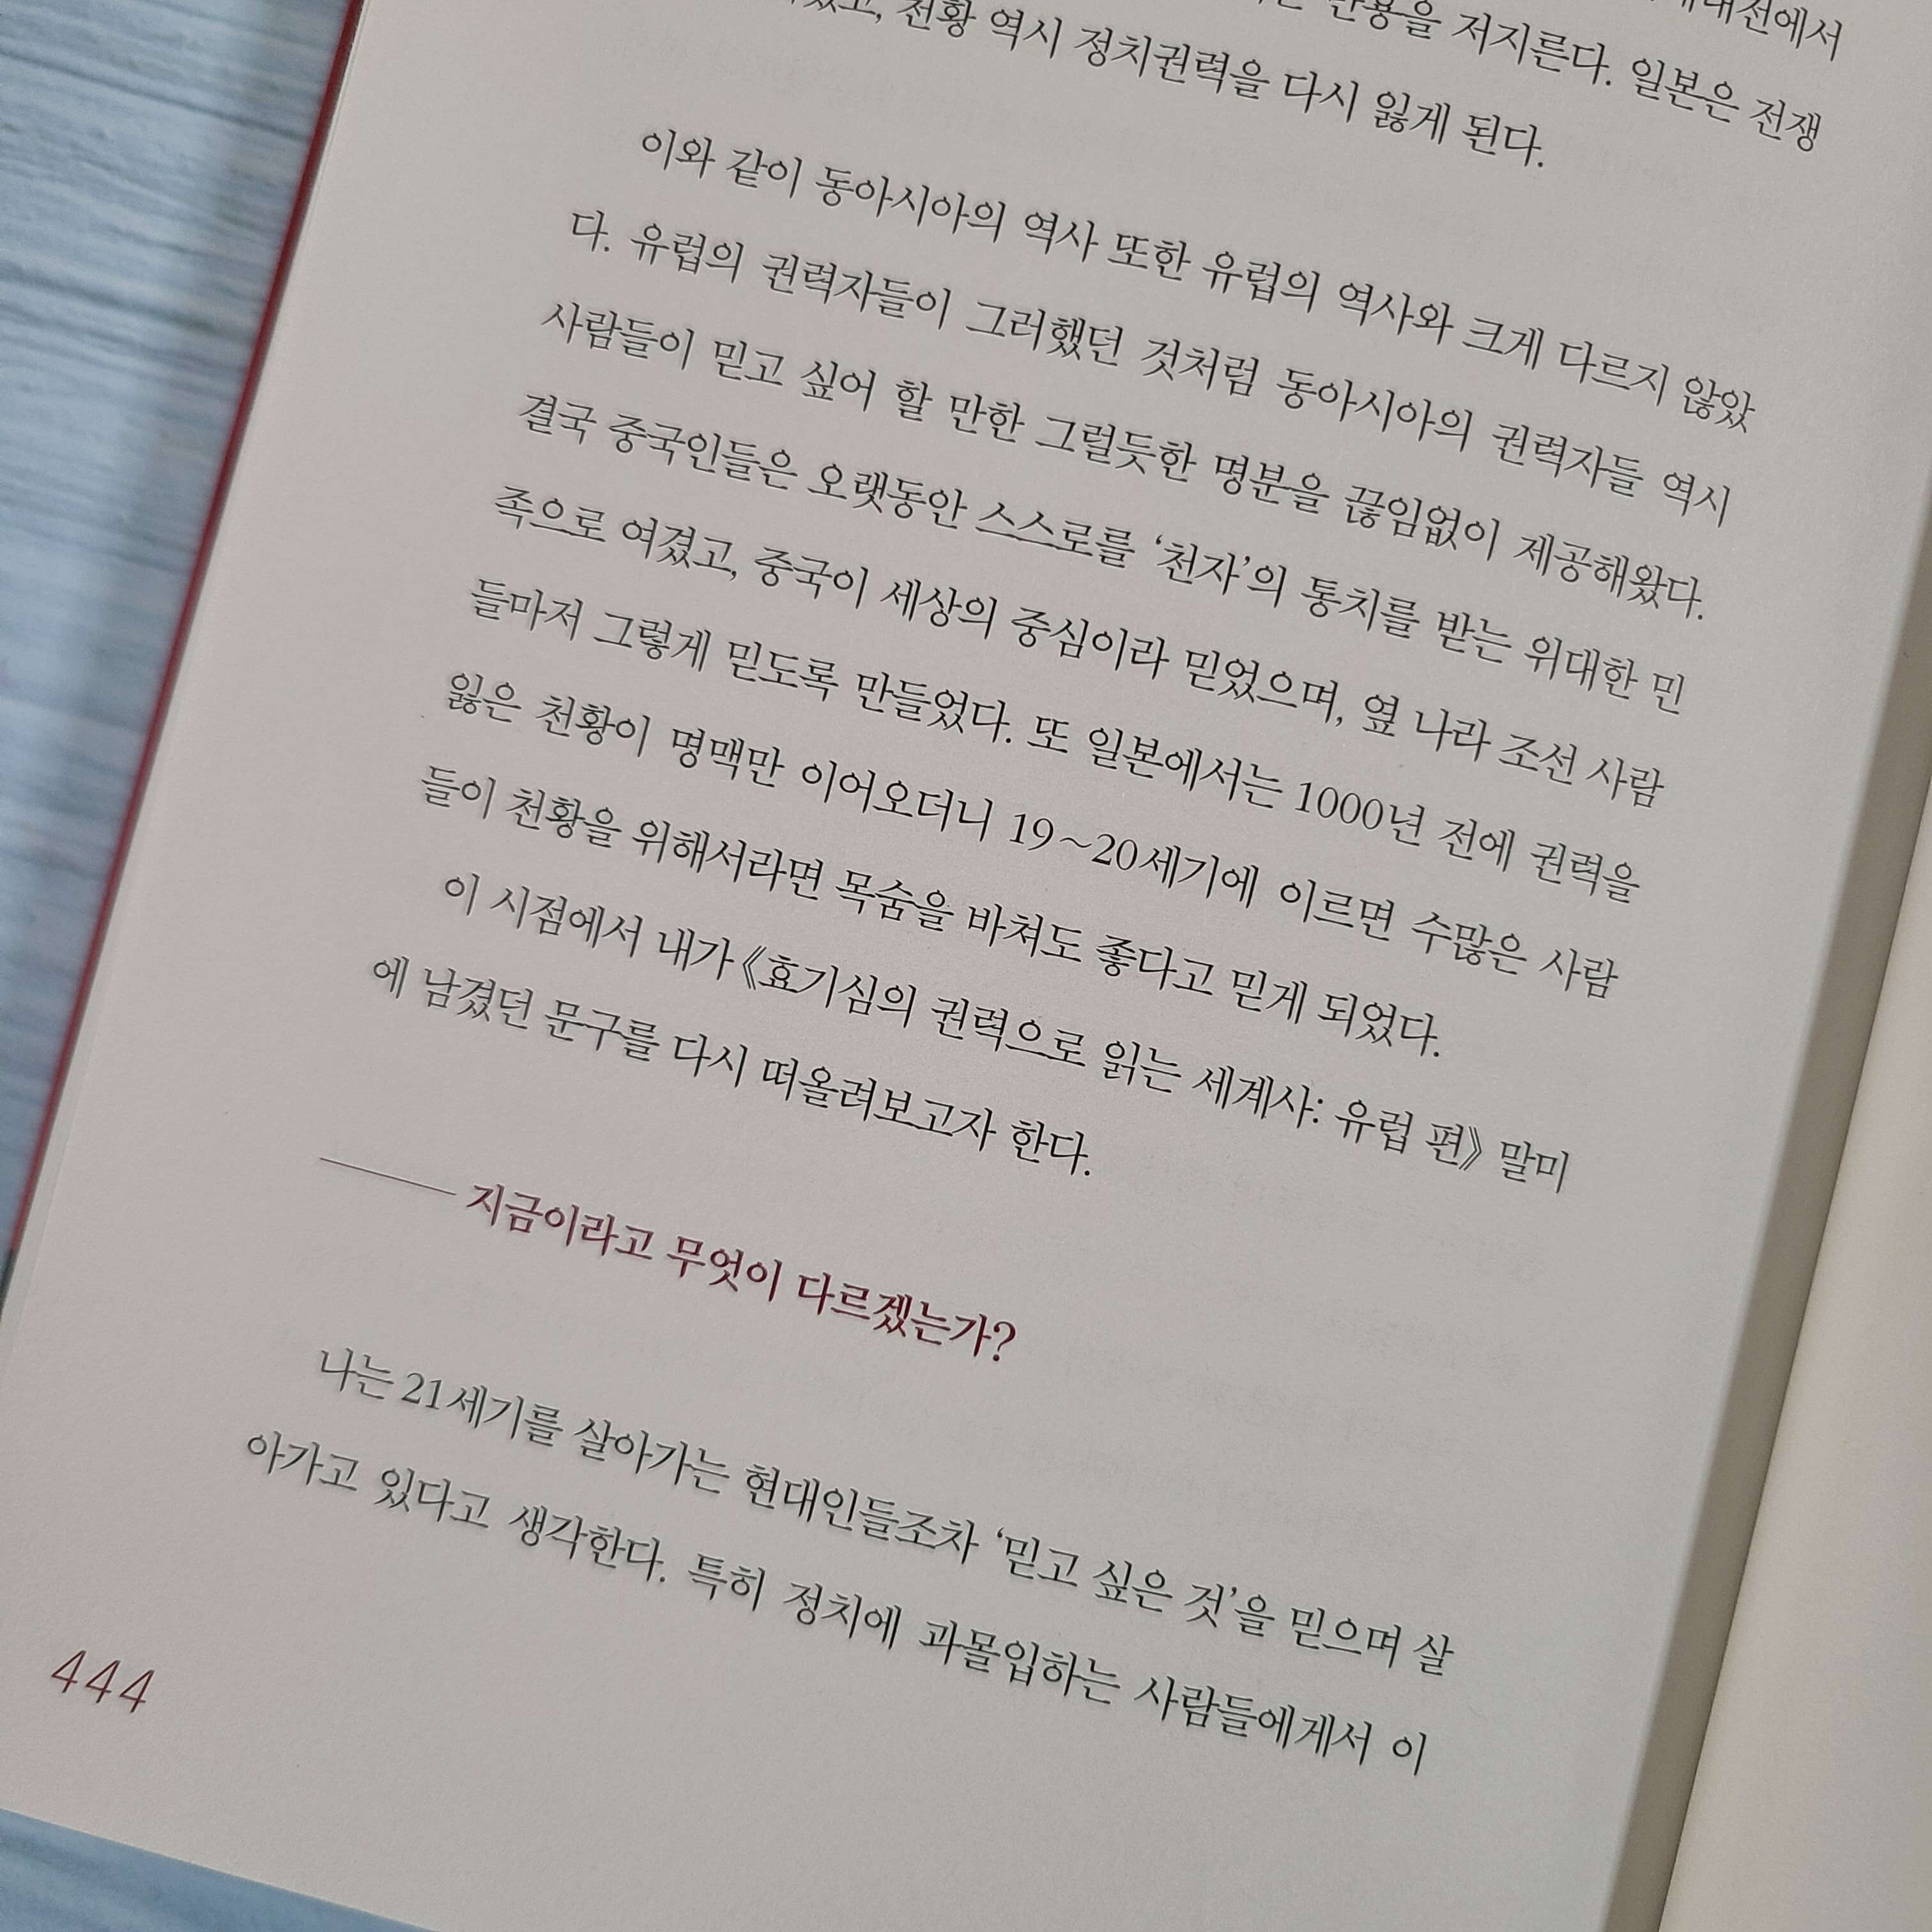 만용을 저지른다. 일본은 전쟁
천황 역시 정치권력을 다시 잃게 된다.
이와 같이 동아시아의 역사 또한 유럽의 역사와 크게 다르지 않았
다. 유럽의 권력자들이 그러했던 것처럼 동아시아의 권력자들 역시
사람들이 믿고 싶어 할 만한 그럴듯한 명분을 끊임없이 제공해왔다.
결국 중국인들은 오랫동안 스스로를 ‘천자’의 통치를 받는 위대한 민
족으로 여겼고, 중국이 세상의 중심이라 믿었으며, 옆 나라 조선 사람
들마저 그렇게 믿도록 만들었다. 또 일본에서는 1000년 전에 권력을
잃은 천황이 명맥만 이어오더니 19~20세기에 이르면 수많은 사람
들이 천황을 위해서라면 목숨을 바쳐도 좋다고 믿게 되었다.
이 시점에서 내가 《효기심의 권력으로 읽는 세계사: 유럽 편》 말미
에 남겼던 문구를 다시 떠올려보고자 한다.
지금이라고 무엇이 다르겠는가?
나는 21세기를 살아가는 현대인들조차 ‘믿고 싶은 것’을 믿으며 살
아가고 있다고 생각한다. 특히 정치에 과몰입하는 사람들에게서 이
444